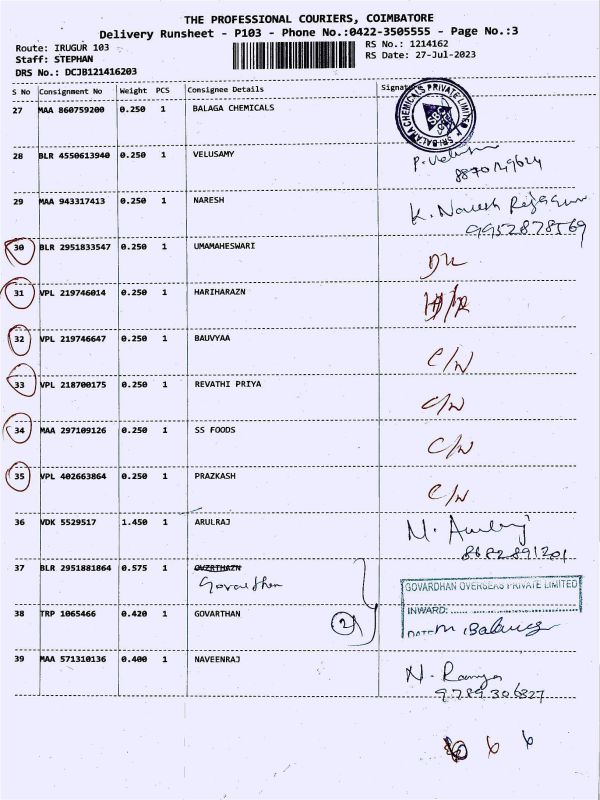 THE PROFESSIONAL COURIERS, COIMBATORE
Delivery Runsheet - P103 - Phone No.:0422-3505555 - Page No.:3
Route: IRUGUR 103 RS No.: 1214162
Staff: STEPHAN RS Date: 27-Jul-2023
DRS No.: DCJB121416203
S No Consignment No Weight PCS Consignee Details Signature
27 MAA 860759200 0.250 1 BALAGA CHEMICALS
28 BLR 4550613940 0.250 1 VELUSAMY
29 MAA 943317413 0.250 1 NARESH K. Naresh
9952878569
30 BLR 2951833547 0.250 1 UMAMAHESWARI DL
31 VPL 219746014 0.250 1 HARIHARAZN
32 VPL 219746647 0.250 1 BAUVYAA C/N
33 VPL 218700175 0.250 1 REVATHI PRIYA C/N
34 MAA 297109126 0.250 1 SS FOODS C/N
35 VPL 402663864 0.250 1 PRAZKASH C/N
36 VDK 5529517 1.450 1 ARULRAJ M. Arulraj
8682891201
37 BLR 2951881864 0.575 1
Govardhan
GOVARDHAN OVERSEAS PRIVATE LIMITED
INWARD:
38 TRP 1065466 0.420 1 GOVARTHAN 2
DATE M. Balaurga
39 MAA 571310136 0.400 1 NAVEENRAJ N. Ramya
9789306827
6 6 6